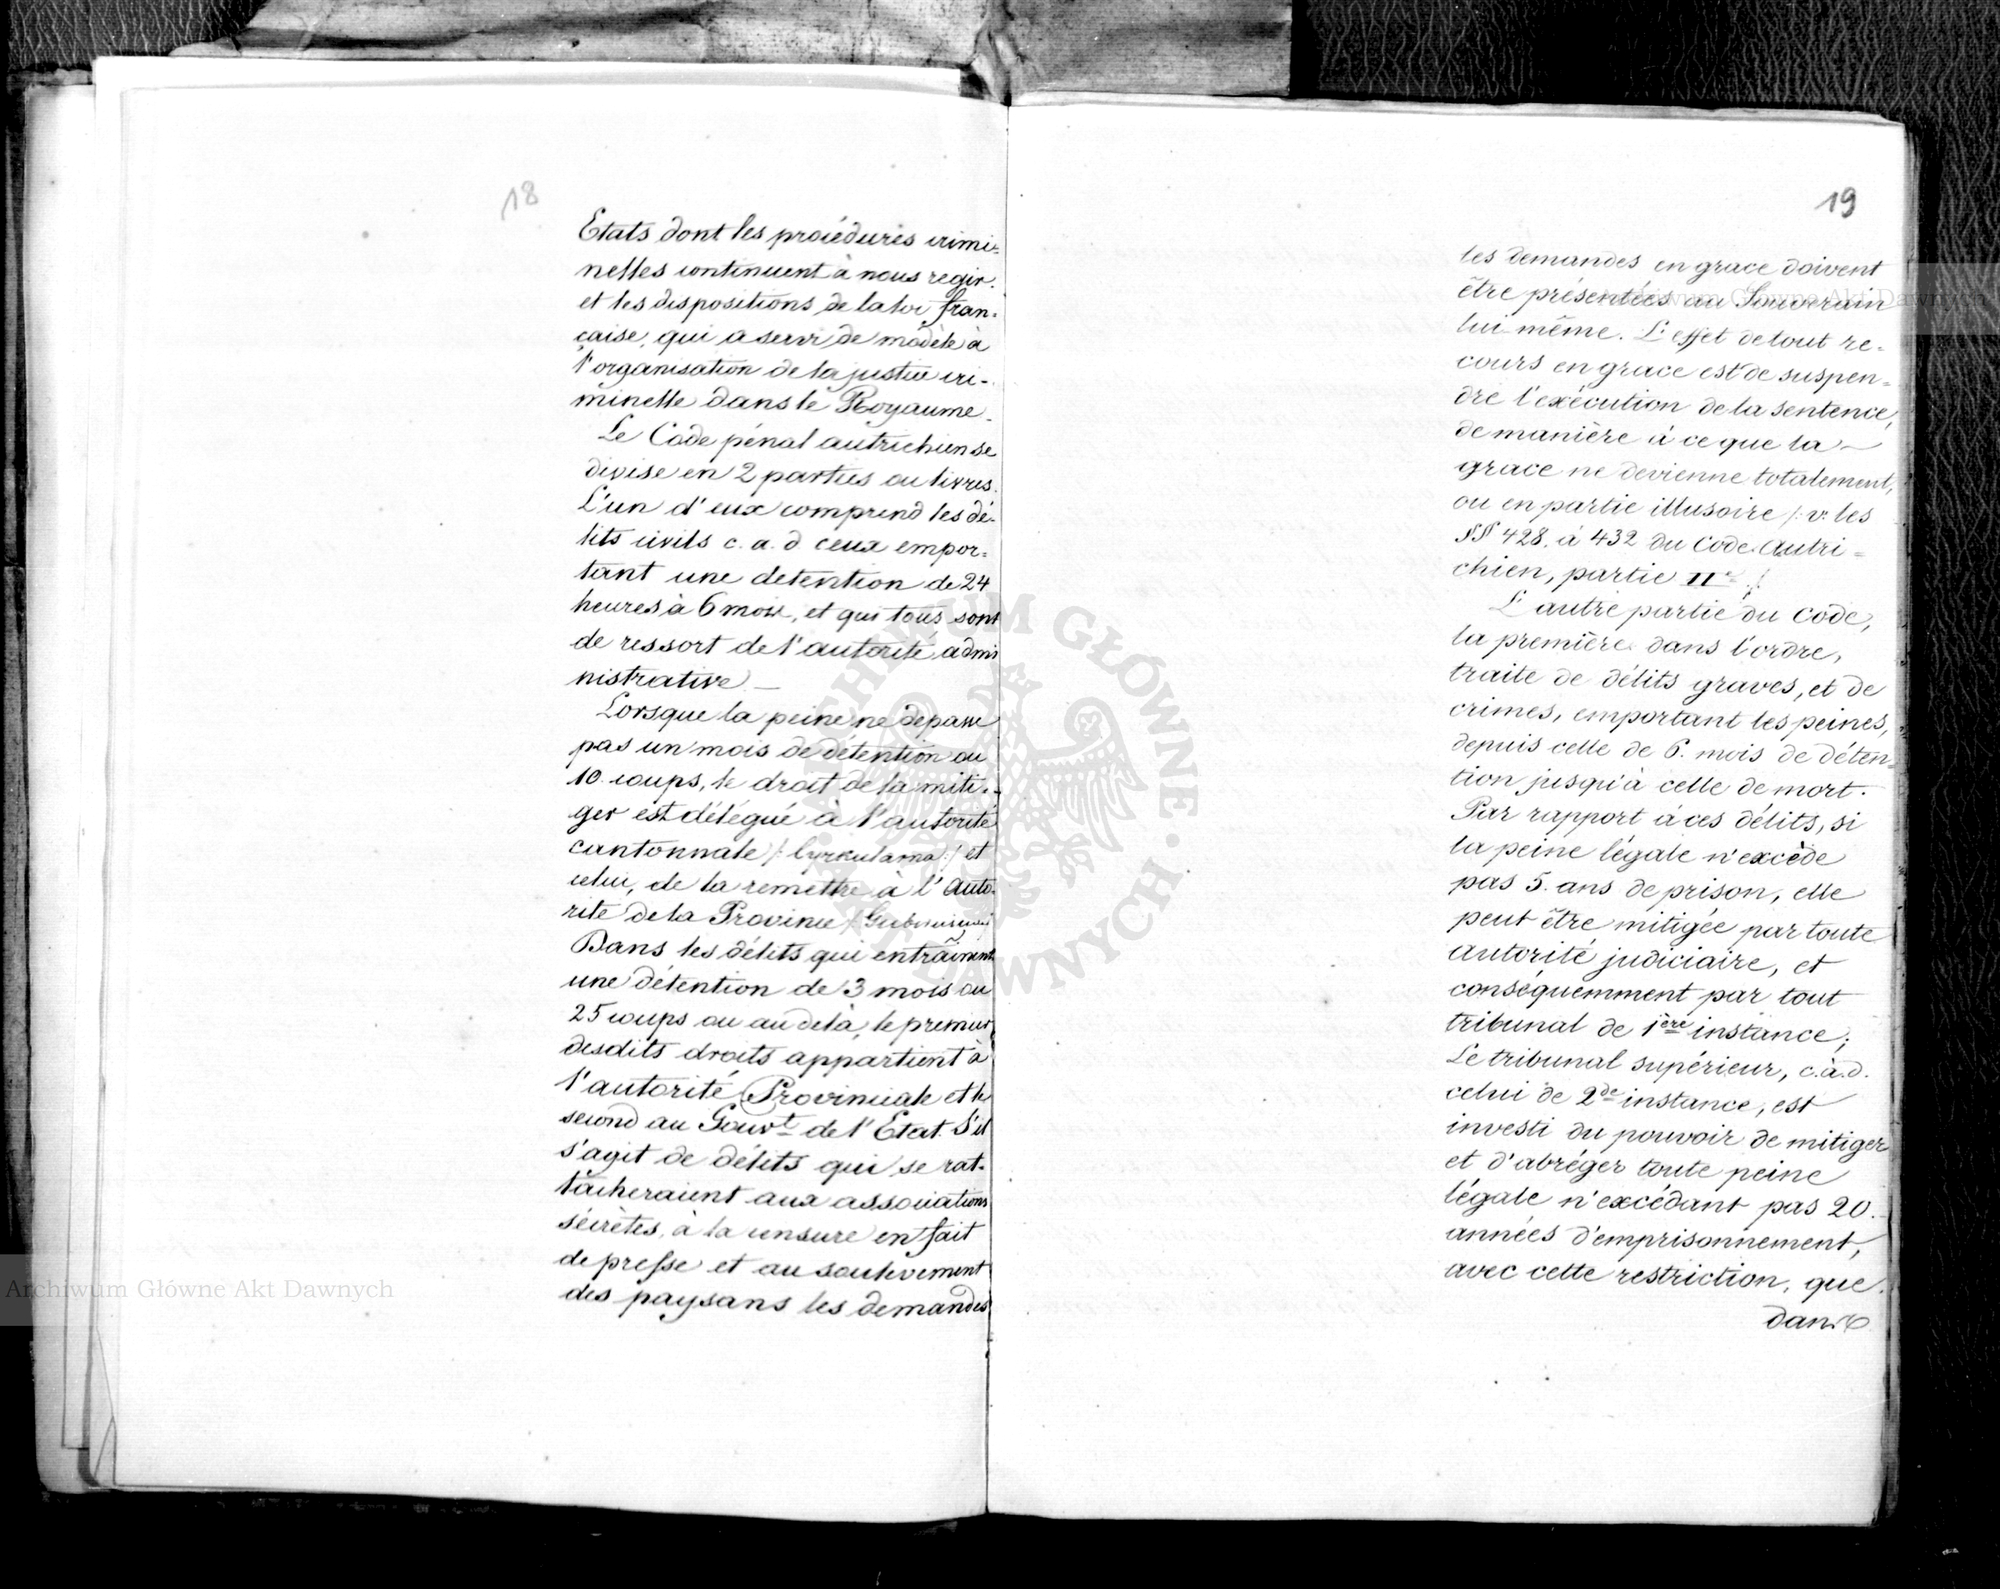 18
Etats dont les procédures crimi=
nelles continuent à nous regir.
et les dispositions de la loi fran=
çaise, qui a servi de modèle à
l'organisation de la justice cri-
minelle dans le Royaume.
Le Code pénal autrichien se
divise en 2 parties ou livres.
L'un d'eux comprend les dé-
lits civils c. a. d ceux empor=
tant une detention de 24
heures à 6 mois, et qui tous sont
de ressort de l'autorité admi
nistrative —
Lorsque la peine ne depasse
pas un mois de détention ou
10 coups, le droit de la miti-
ger est délégué à l'autorité
cantonnale /: Cyrkulama :/ et
celui, de la remettre à l'auto-
rité de la Province
Dans les délits qui entraînent
une détention de 3 mois ou
25 coups ou au delà, le premier
desdits droits appartient à
l'autorité Provinciale et le
second au Gouvt de l'Etat. S'il
s'agit de délits qui se rat-
tacheraient aux associations
sécrètes, à la censure en fait
de presse et au soulevement
des paysans les demandes
19
les demandes en grace doivent
être présentées au Souverain
lui même. L'effet de tout re-
cours en grace est de suspen=
dre l'exécution de la sentence,
de manière à ce que la —
grace ne devienne totalement,
ou en partie illusoire /: v: les
§§ 428. à 432 du Code Autri=
chien, partie IIe :/
L'autre partie du Code,
la première dans l'ordre,
traite de délits graves, et de
crimes, emportant les peines,
depuis celle de 6. mois de déten=
tion jusqu'à celle de mort.
Par rapport à ces délits, si
la peine légale n'excède
pas 5. ans de prison, elle
peut être mitigée par toute
autorité judiciaire, et
conséquemment par tout
tribunal de 1ère instance;
Le tribunal supérieur, c.à.d.
celui de 2de instance, est
investi du pouvoir de mitiger
et d'abréger toute peine
légale n'excédant pas 20.
années d'emprisonnement,
avec cette restriction, que
dans
Archiwum Główne Akt Dawnych
Archiwum Główne Akt Dawnych
ARCHIWUM GŁÓWNE AKT DAWNYCH